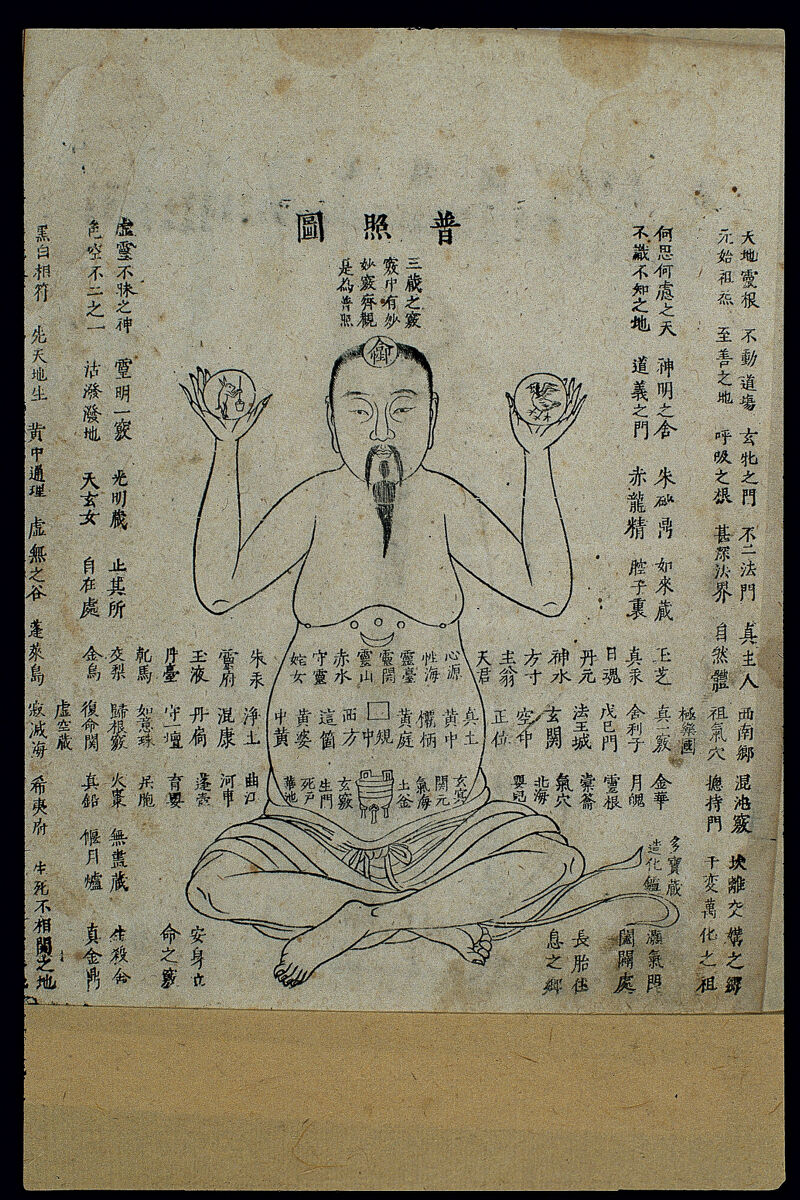 普照圖
三藏之竅
竅中有妙
妙竅齊觀
是為普照
天地靈根 不動道塲 玄牝之門 不二法門 真主人 西南鄉 混沌竅 坎離交媾之鄉
元始祖炁 至善之地 呼吸之根 甚深法界 自然體 祖氣穴 摠持門 千變萬化之祖
何思何慮之天 神明之舍 朱砂鼎 如來藏
不識不知之地 道義之門 赤龍精 腔子裏
極樂國
玉芝 真汞 日魂 丹元 神水 方寸 主翁 天君 心源 性海 靈臺 靈關 靈山 赤水 守靈 姹女 朱汞 靈府 玉液 丹臺 乾馬 交梨 金烏
真一竅 舍利子 戊己門 法王城 玄關 空中 正位 真土 黃中 欛柄 黃庭 規中 西方 這箇 黃婆 中黃 淨土 混康 丹扃 守一壇 如意珠 歸根竅 復命關
金華 月魄 靈根 橐籥 氣穴 北海 嬰兒 關元 氣海 土金 玄竅 生門 死戶 華池 曲江 河車 蓬壺 育嬰 火棗 真鉛
多寶藏
造化鑪
灝氣門
闔闢處
長胎住
息之鄉
安身立
命之竅
虛靈不昧之神 靈明一竅 光明藏 止其所
色空不二之一 活潑潑地 天玄女 自在處
無盡藏 生殺舍
偃月爐 真金鼎
虛空藏
黑白相符 先天地生 黃中通理 虛無之谷 蓬萊島 寂滅海 希夷府 生死不相關之地